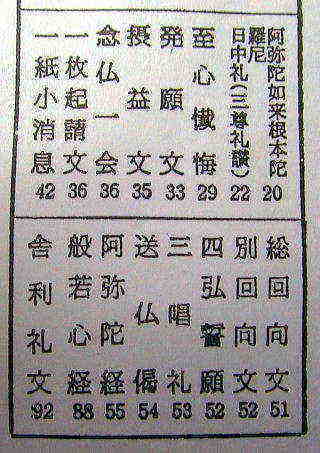 阿弥陀如来根本陀羅尼 20
日中礼(三尊礼讃) 22
至心懺悔 29
発願文 33
摂益文 35
念仏一会 36
一枚起請文 36
一紙小消息 42
総回向文 51
別回向文 52
四弘誓願 52
三唱礼 53
送仏偈 54
阿弥陀経 55
般若心経 88
舎利礼文 92